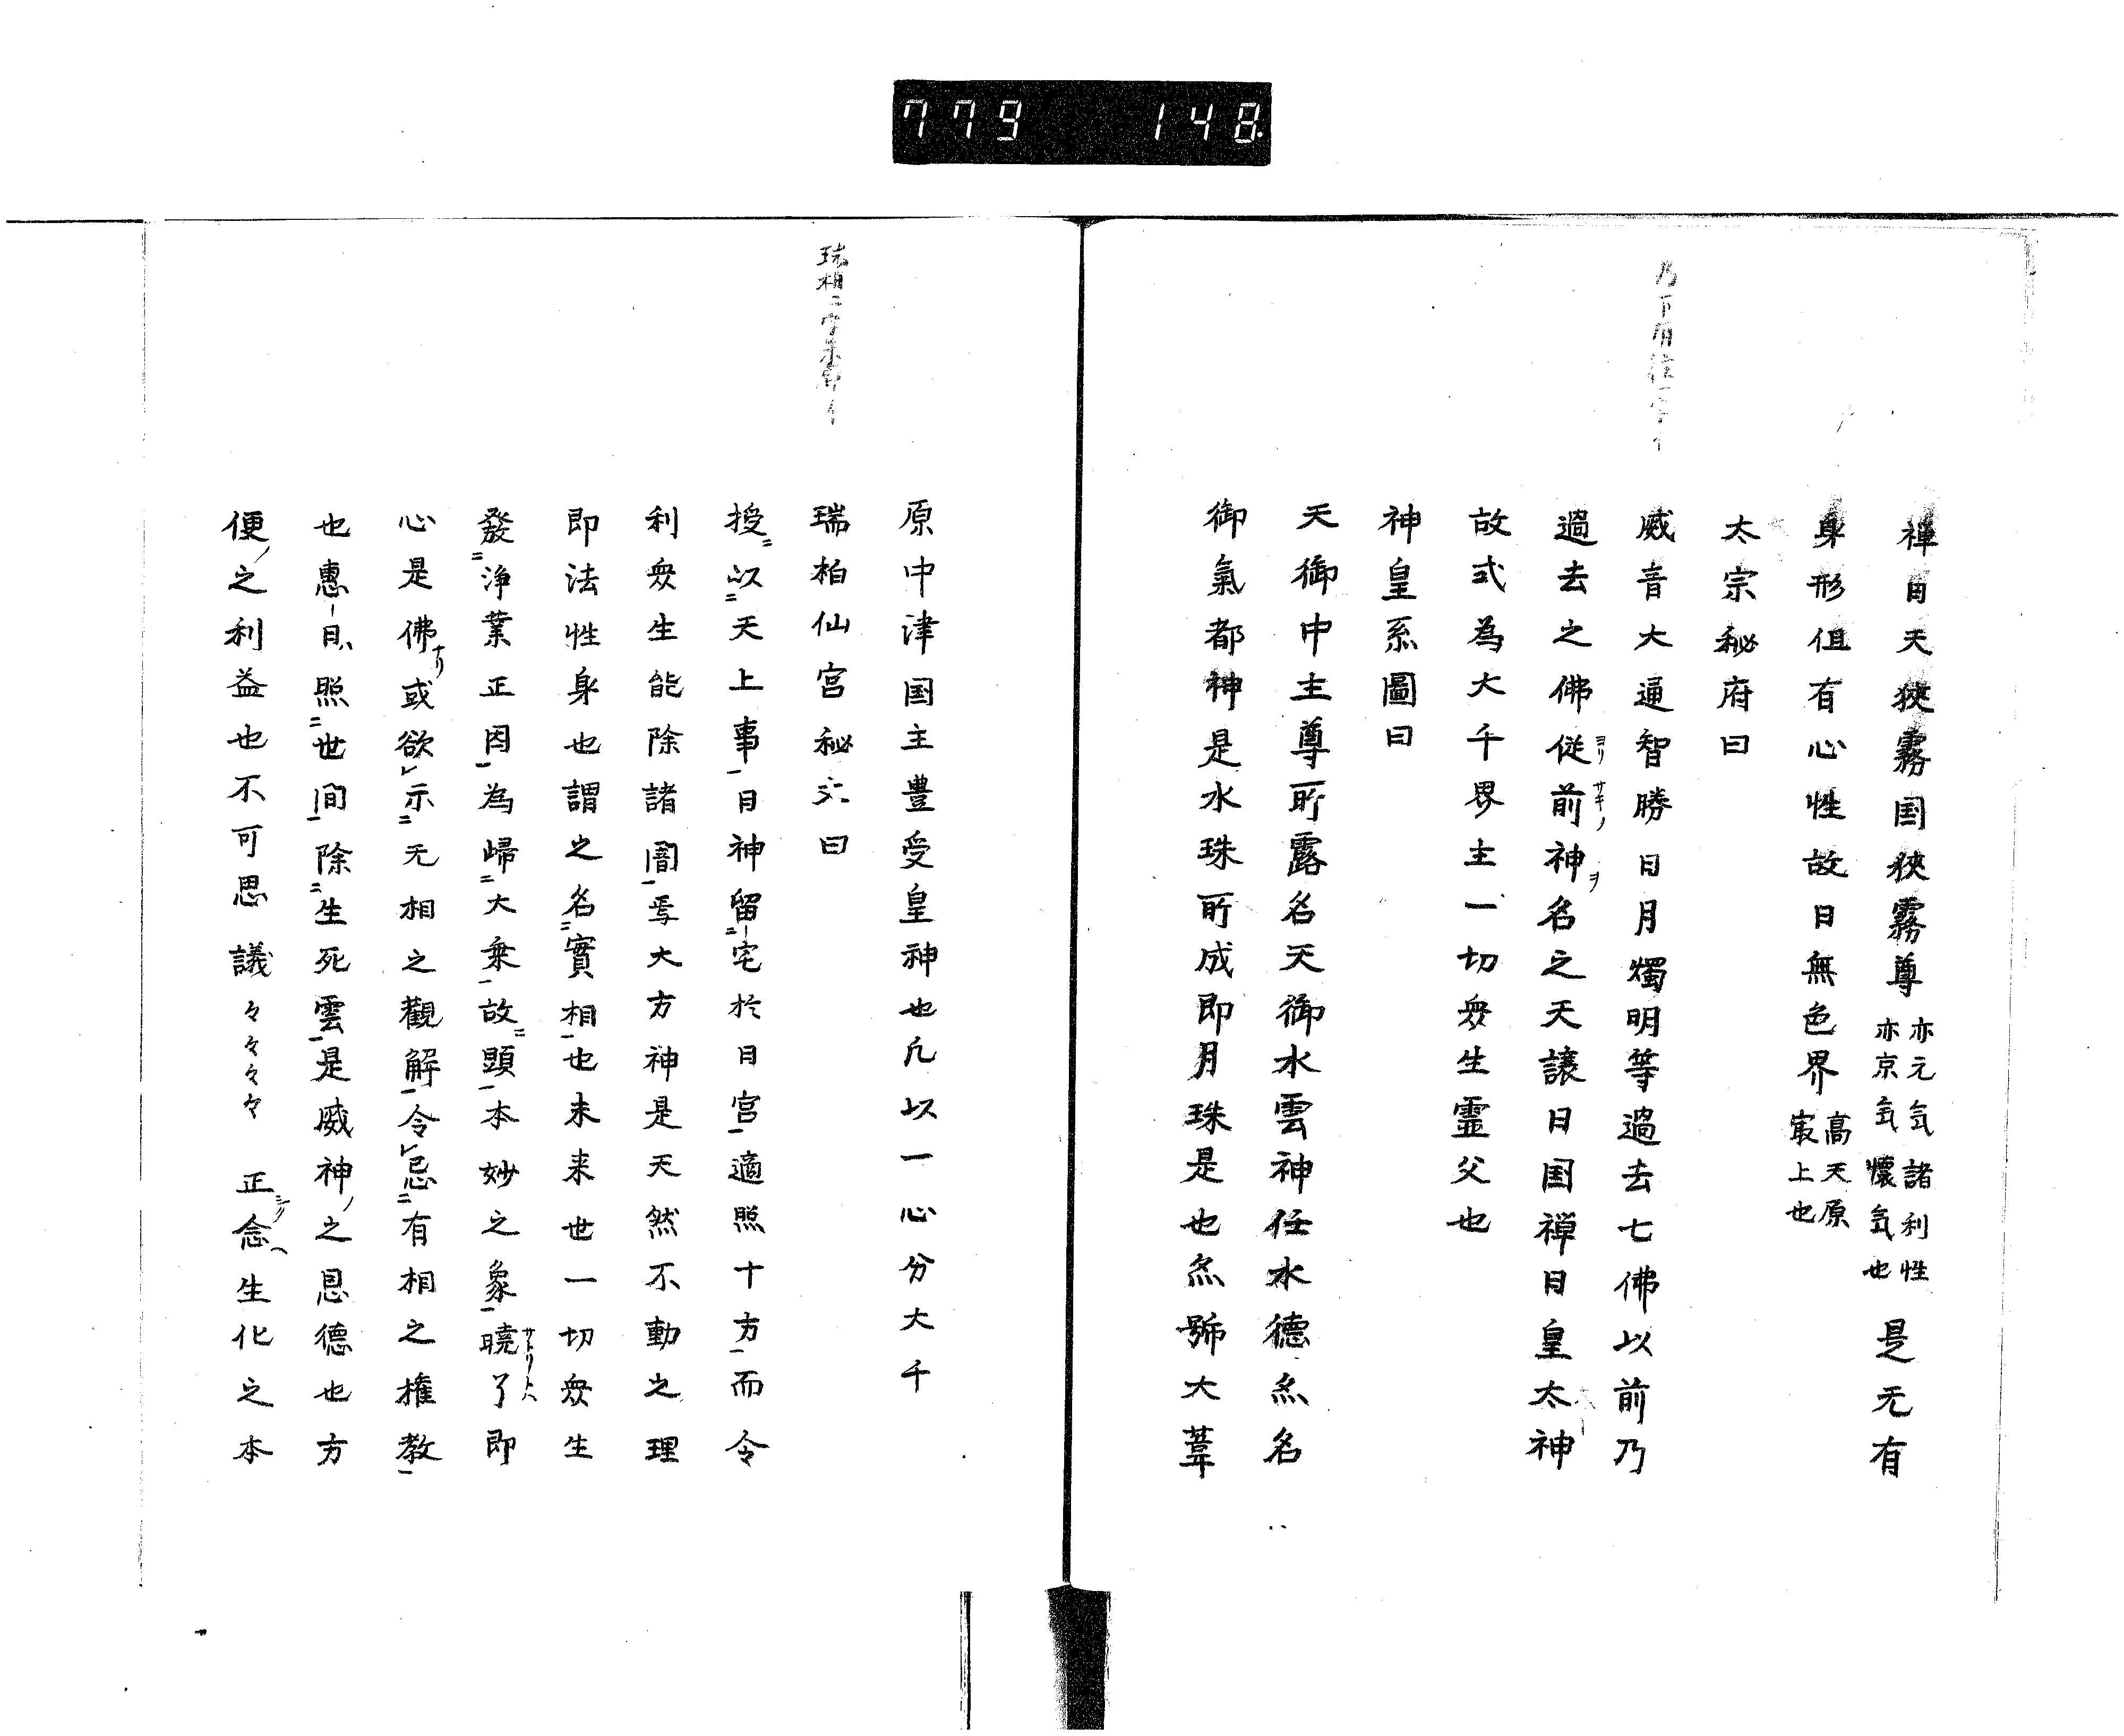 779 148
禅曰天狹霧国狹霧尊亦元気諸利性亦京気懐気也是无有
身形但有心性故曰無色界高天原㝡上也
太宗秘府曰
威音大通智勝日月燭明等過去七佛以前乃
過去之佛従ヨリ前サキノ神ヲ名之天譲日国禅日皇太神
故式為大千界主一切衆生霊父也
神皇系圖曰
天御中主尊所露名天御水雲神任水德亦名
御氣都神是水珠所成即月珠是也亦號大葦
原中津国主豊受皇神也凡以一心分大千
瑞柏仙宮秘文曰
授以天上事日神留宅於日宮適照十方而令
利衆生能除諸闇焉大方神是天然不動之理
即法性身也謂之名實相也未来世一切衆生
發浄業正因為歸大乗故顕本妙之象曉了即
心是佛ナリ或欲示无相之觀解令忘有相之權教
也惠日照世間除生死雲是威神之恩德也方
便之利益也不可思議々々々々正念生化之本